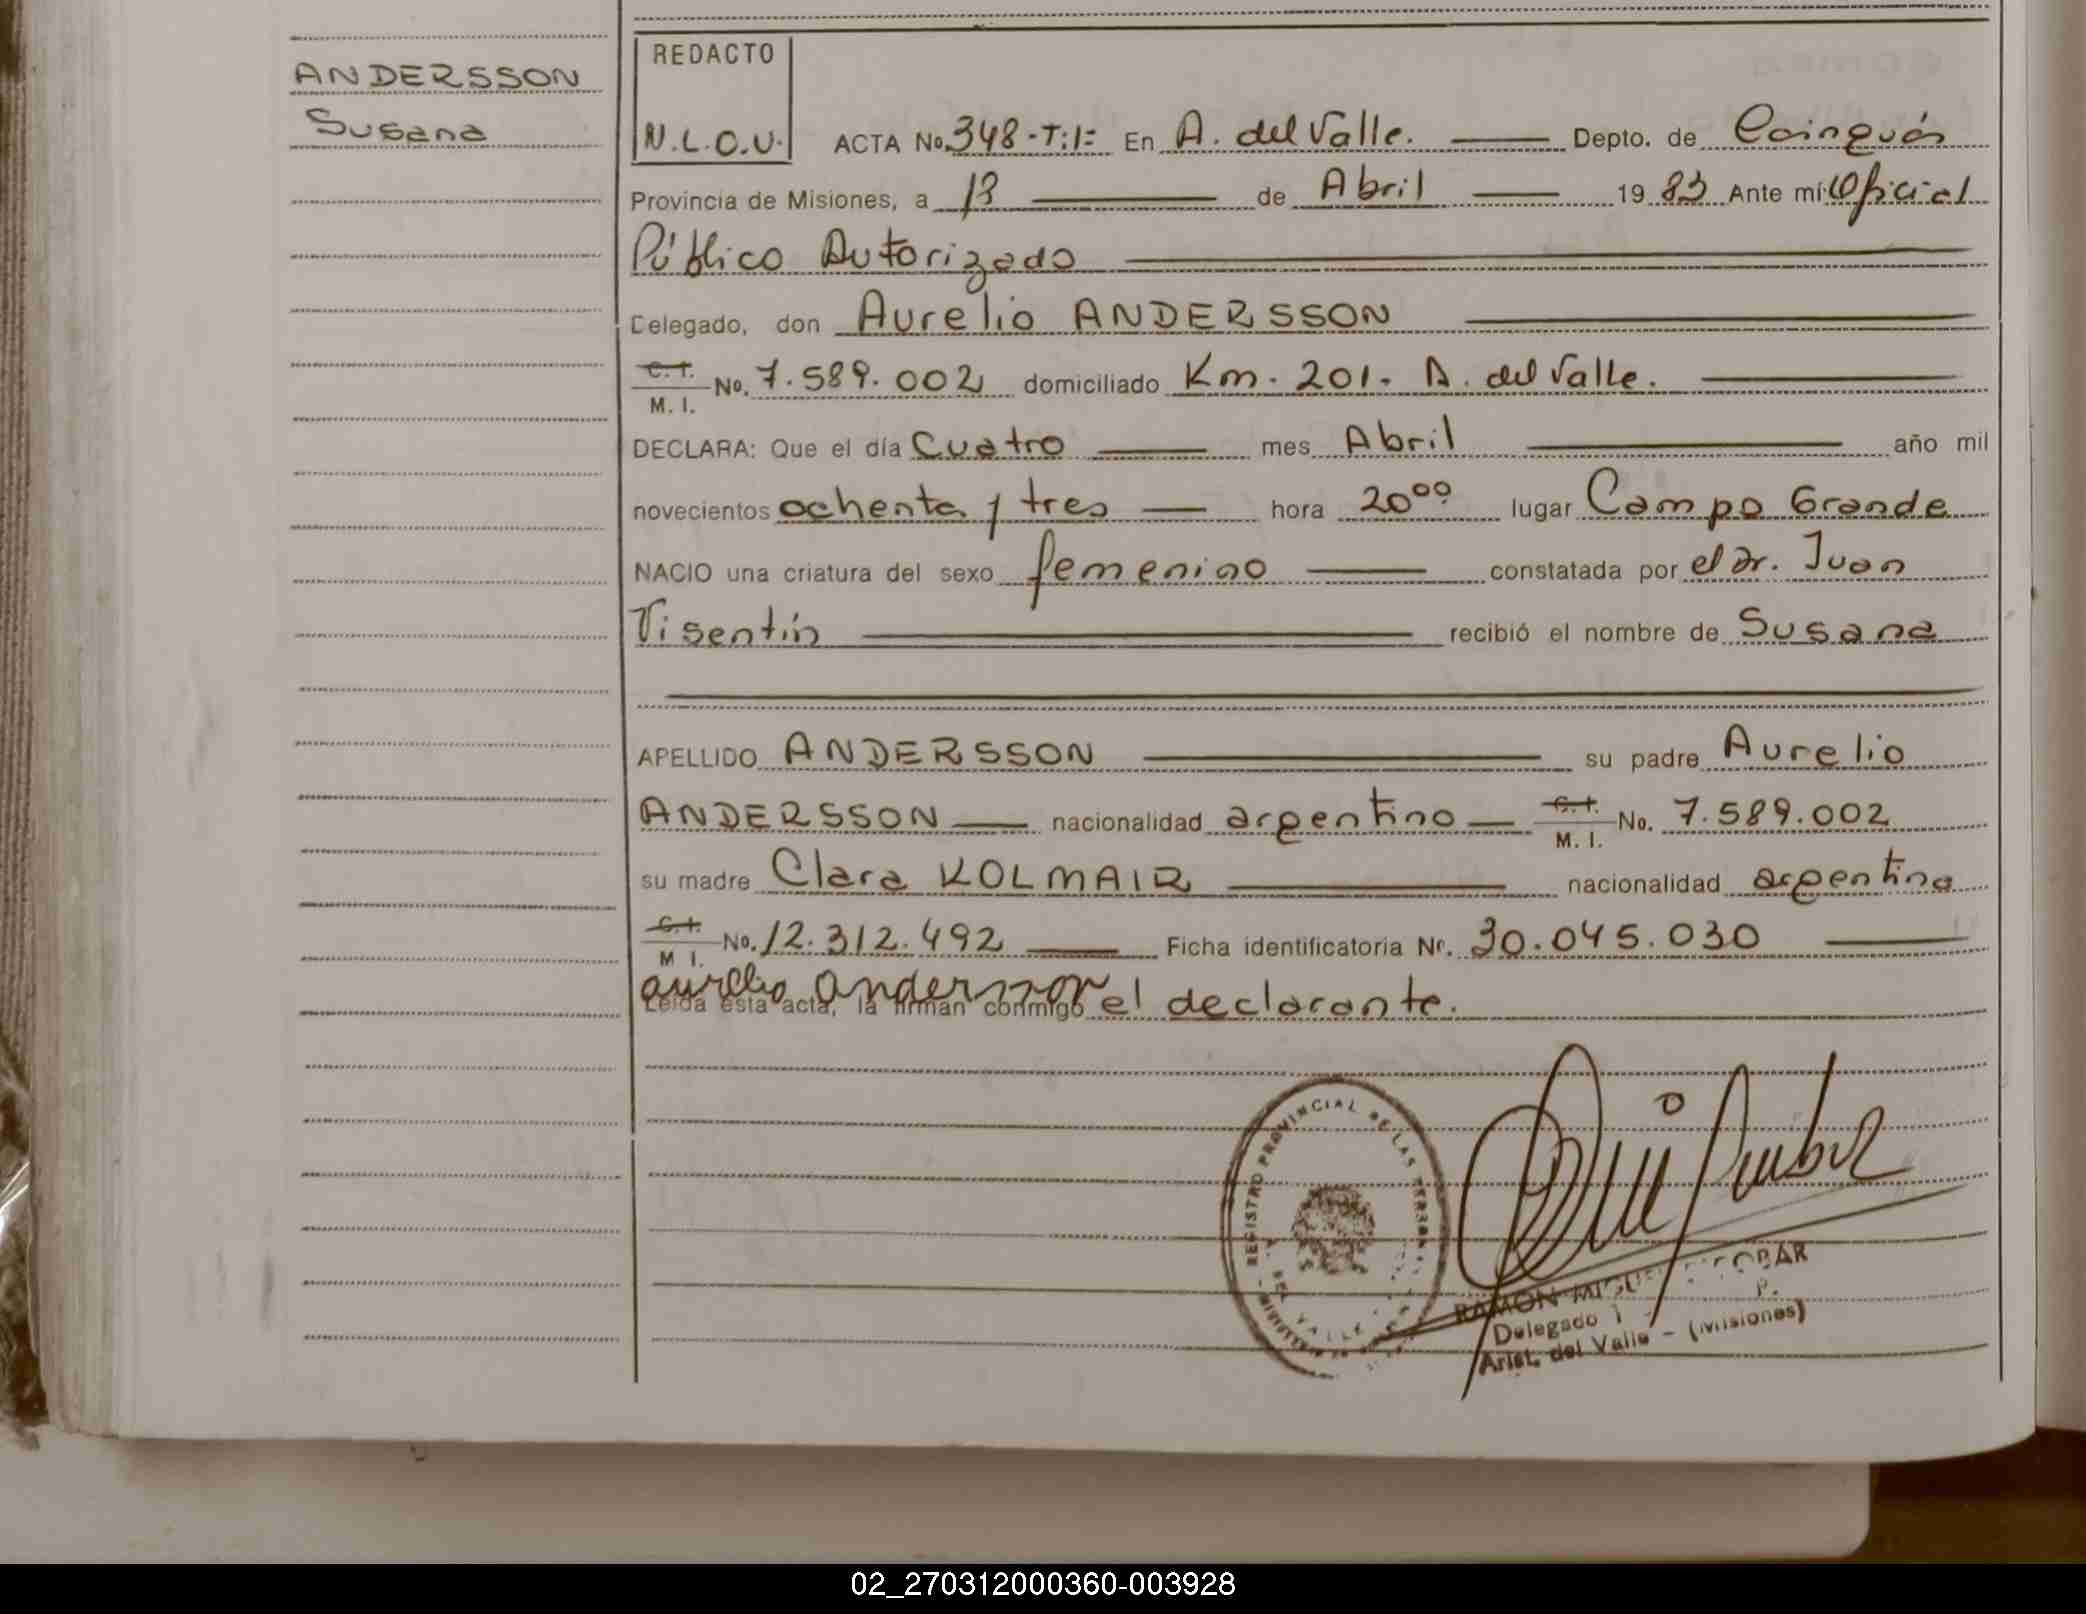 ANDERSSON
Susana
REDACTO
N.L.O.V.
ACTA No. 348-T:I= En A. del Valle. Depto. de Cainguás
Provincia de Misiones, a 13 de Abril 1983 Ante mí: Oficial
Público Autorizado
Delegado, don Aurelio ANDERSSON
C.I.
M. I. No. 7.589.002 domiciliado Km. 201. A. del Valle.
DECLARA: Que el día Cuatro mes Abril año mil
novecientos ochenta y tres hora 20⁰⁰ lugar Campo Grande
NACIO una criatura del sexo femenino constatada por el Dr. Juan
Visentín recibió el nombre de Susana
APELLIDO ANDERSSON su padre Aurelio
ANDERSSON nacionalidad argentino C.I. M. I. No. 7.589.002
su madre Clara KOLMAIR nacionalidad argentina
C.I. M I. No. 12.312.492 Ficha identificatoria Nr. 30.045.030
aurelio andersson
Leída esta acta, la firman conmigo el declarante.
REGISTRO PROVINCIAL DE LAS PERSONAS
DEL VALLE
RAMON MIGUEL ESCOBAR
Delegado
Arist. del Valle - (Misiones)
02_270312000360-003928